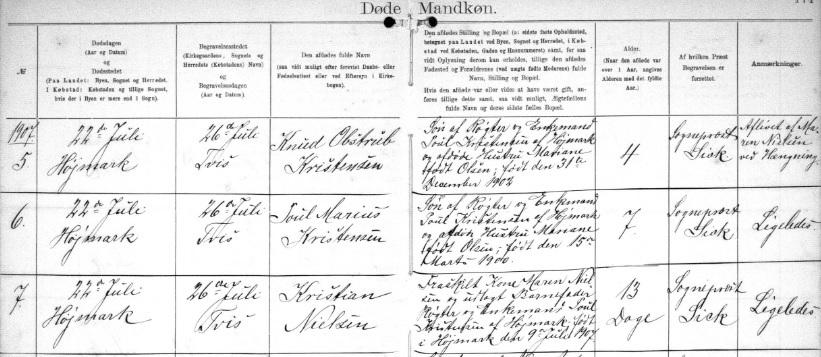 Døde Mandkøn.
№
Dødsdagen
(Aar og Datum)
og
Dødsstedet
(Paa Landet: Byen, Sognet og Herredet.
I Købstad: Købstaden og tillige Sognet,
hvis der i Byen er mere end 1 Sogn).
Begravelsesstedet
(Kirkegaardens, Sognets og
Herredets (Købstadens) Navn)
og
Begravelsesdagen
(Aar og Datum).
Den afdødes fulde Navn
(saa vidt muligt efter forevist Daabs- eller
Fødselsattest eller ved Eftersyn i Kirke-
bogen).
Den afdødes Stilling og Bopæl (ɔ: sidste faste Opholdssted,
betegnet paa Landet ved Byen, Sognet og Herredet, i Køb-
stad ved Købstaden, Gaden og Husnumeret) samt, for saa
vidt Oplysning derom kan erholdes, tillige den afdødes
Fødested og Forældrenes (ved uægte fødte Moderens) fulde
Navn, Stilling og Bopæl.
Hvis den afdøde var eller havde været gift, an-
føres tillige dette samt, saa vidt muligt, Ægtefællens
fulde Navn og deres sidste fælles Bopæl.
Alder.
(Naar den afdøde var
over 1 Aar, angives
Alderen med det fyldte
Aar.)
Af hvilken Præst
Begravelsen er
forrettet.
Anmærkninger.
1907.
5
22de Juli
Højmark
26de Juli
Tvis
Knud Obstrub
Kristensen
Søn af Røgter og Enkemand
Poul Kristensen af Højmark
og afdøde Hustru Mariane
født Olsen; født den 31te
December 1902
4
Sogneprovst
Sick
Aflivet af Ma-
ren Nielsen
ved Hængning.
6.
22de Juli
Højmark
26de Juli
Tvis
Poul Marius
Kristensen
Søn af Røgter og Enkemand
Poul Kristensen af Højmark
og afdøde Hustru Mariane
født Olsen; født den 15de
Marts 1900.
7
Sogneprovst
Sick
Ligeledes.
7.
22de Juli
Højmark
26de Juli
Tvis
Kristian
Nielsen
Fraskilt Kone Maren Niel-
sen og udlagt Barnefader
Røgter og Enkemand Poul
Kristensen af Højmark. født
i Højmark den 9de Juli 1907
13
Dage
Sogneprovst
Sick
Ligeledes.